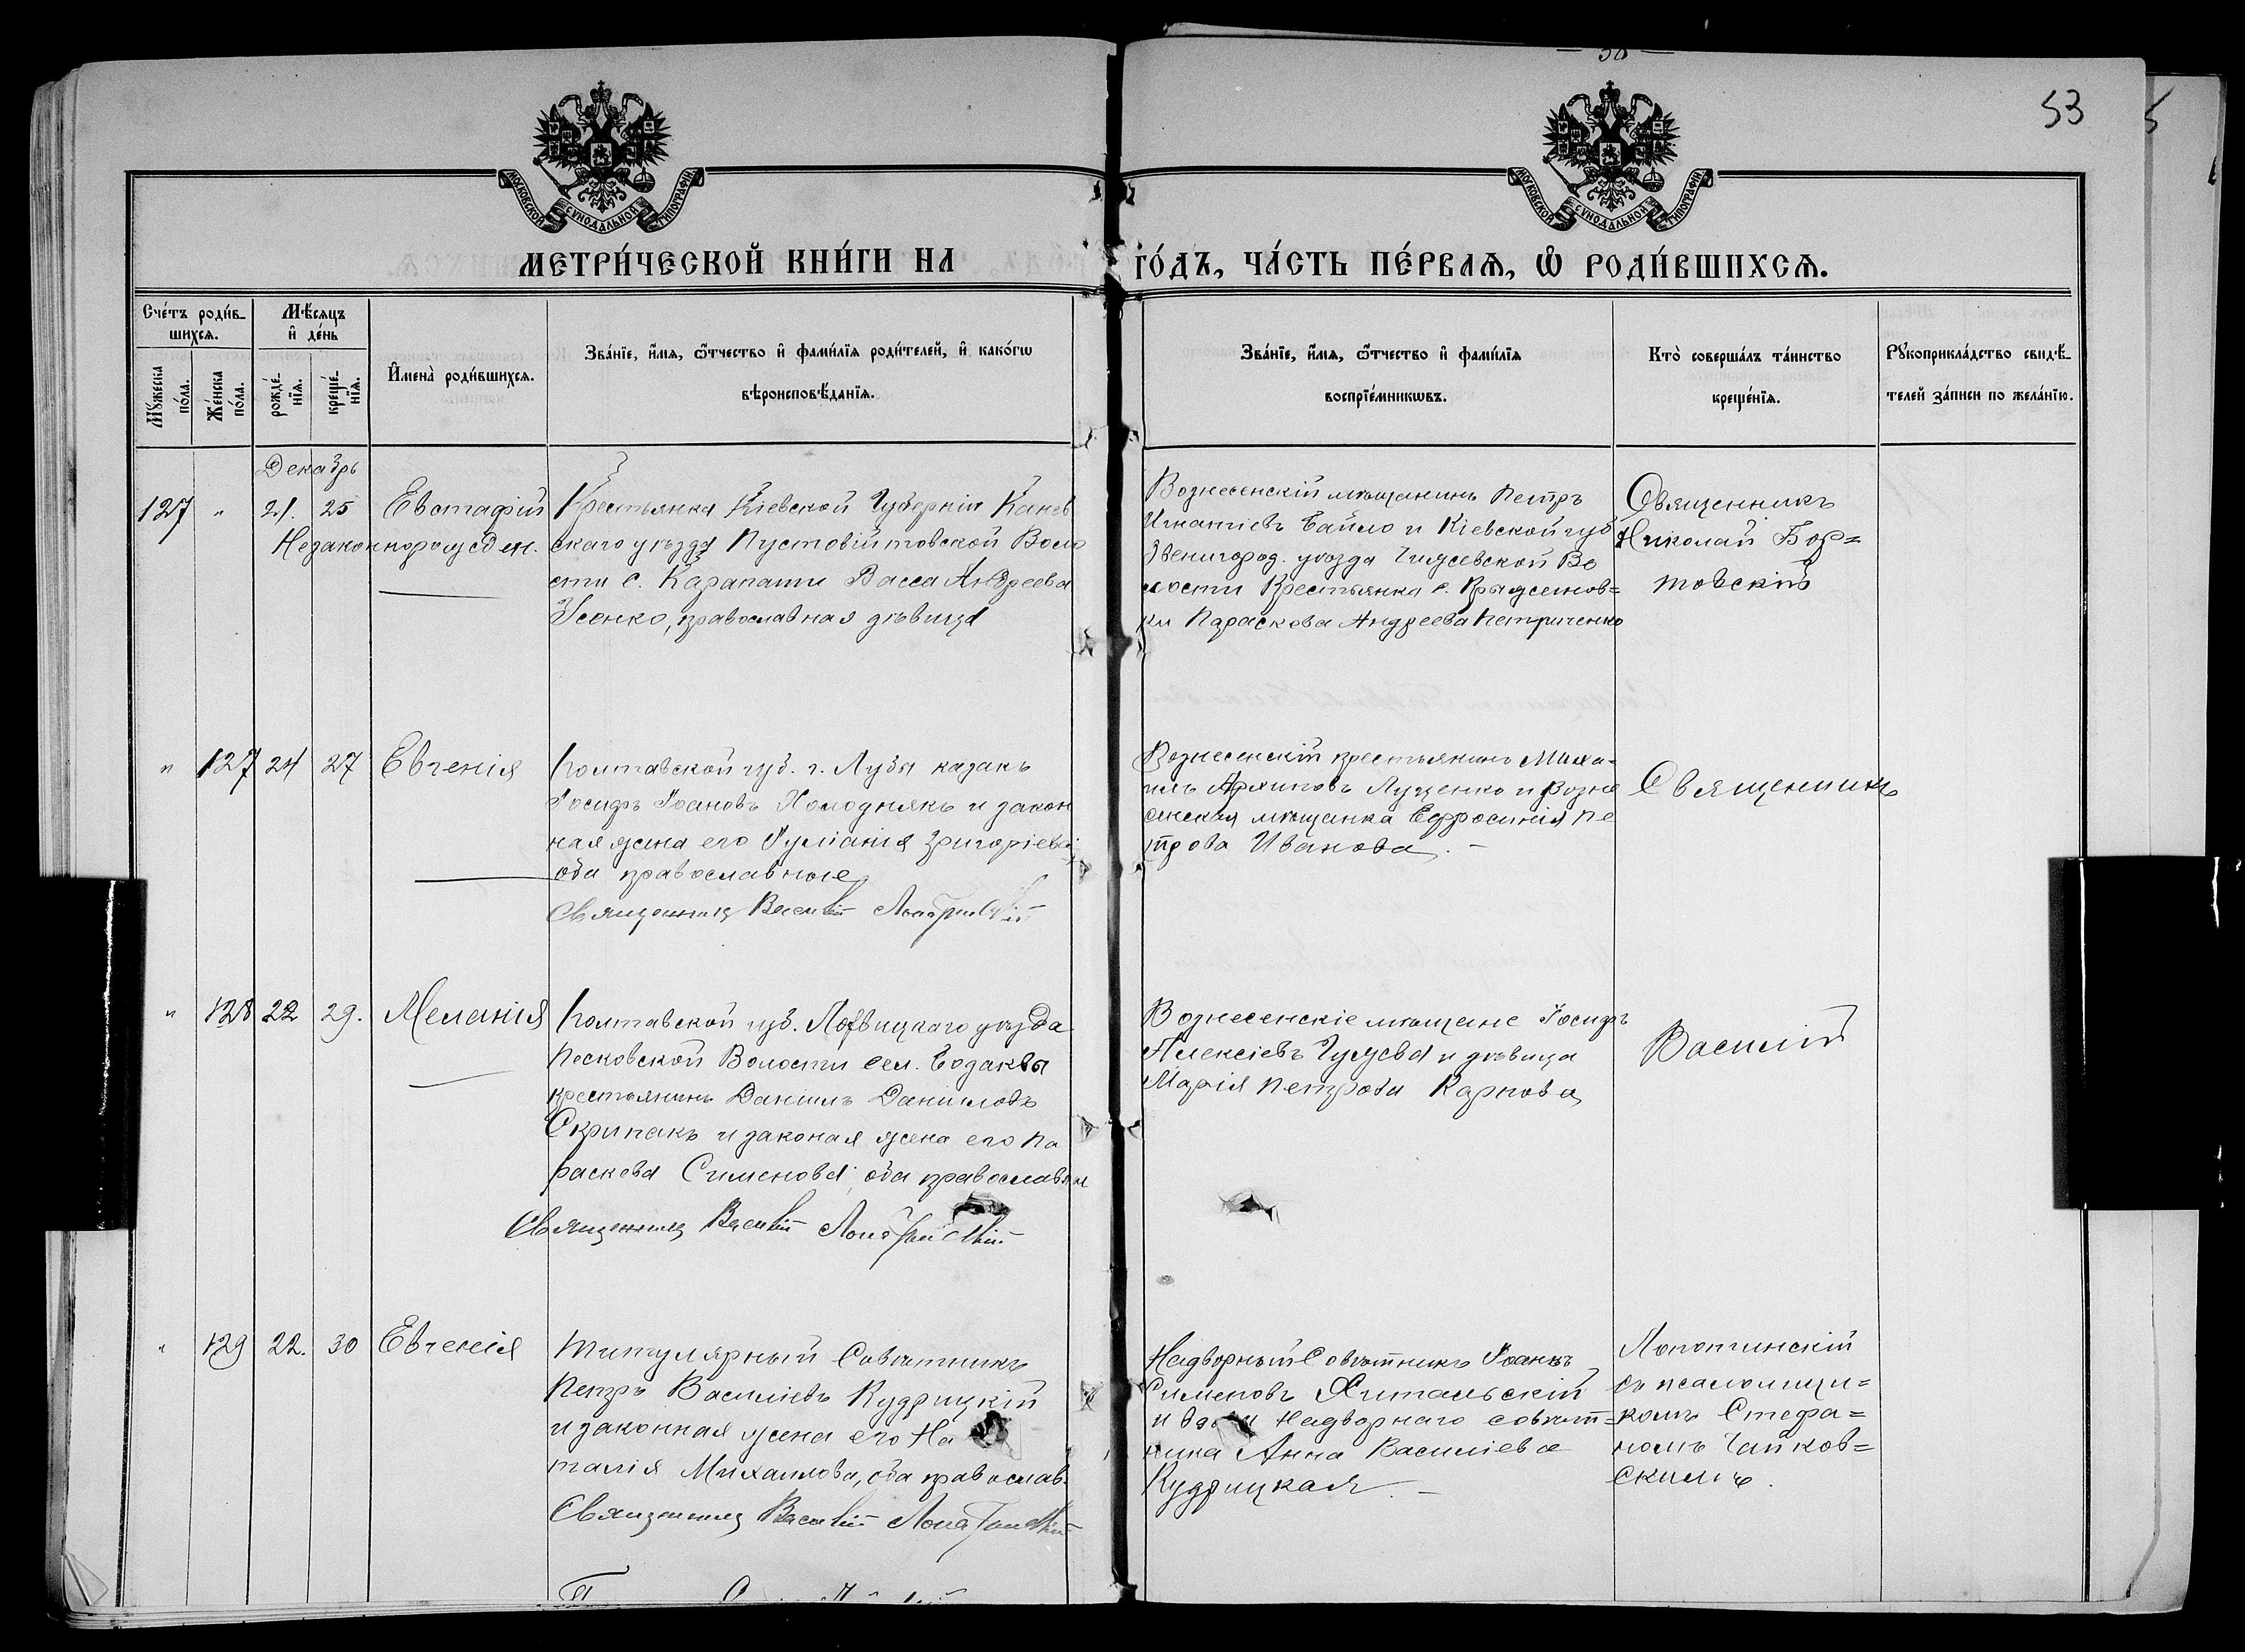 — 58 —
53
МОСКОВСКОЙ СѴНОДАЛЬНОЙ ТИПОГРАФІИ
МОСКОВСКОЙ СѴНОДАЛЬНОЙ ТИПОГРАФІИ
МЕТРИ́ЧЕСКОЙ КНИ́ГИ НА
ГО́ДЪ, ЧА́СТЬ ПЕ́РВАѦ, Ѽ РОДИ́ВШИХСѦ.
Сче́тъ роди́в-
шихсѧ.
Мꙋ́жеска по́ла.
Же́нска по́ла.
Мѣ́сѧцъ
и҆ де́нь
рожде́-нїѧ.
креще́-нїѧ.
И҆мена̀ роди́вшихсѧ.
Зва́нїе, и҆́мѧ, ѻ҆́тчество и҆ фами́лїѧ роди́телей, и҆ како́гѡ
вѣроисповѣ́данїѧ.
Зва́нїе, и҆́мѧ, ѻ҆́тчество и҆ фами́лїѧ
воспрїе́мникѡвъ.
Кто̀ соверша́лъ та́инство
креще́нїѧ.
Рꙋкоприкла́дство свидѣ́-
телей за́писи по жела́нїю.
Декабрь
127 " 21. 25 Евстафій
Незаконнорожден.
Крестьянка Кіевской Губерніи Канев
скаго уѣзда Пустовійтовской Воло
сти с. Карапаши Васса Андреева
Усенко, православная дѣвица
Вознесенскій мѣщанинъ Петръ
Игнатіевъ Байло и Кіевской губ
Звенигород. уѣзда Гусевской Во
лости Крестьянка с.
ки Параскева Андреева Петриченко
Священникъ
Николай Бор=
товскій
" 127 24 27 Евгенія
Полтавской губ. г. Лубы казакъ
Іосифъ Іоановъ Холоднякъ и закон
ная жена его Іуліанія Григоріева
оба православные
Священникъ Василій Лопатинскій
Вознесенскій крестьянинъ Миха-
илъ Архиповъ Луценко и Возне
сенская мѣщанка Ефросинія Пе
трова Иванова. -
Священникъ
" 128 22 29. Меланія
Полтавской губ. Лохвицкаго уѣзда
Песковской Волости сел. Бодаквы
крестьянинъ Даніилъ Даниловъ
Скрипакъ и законая жена его Па
раскева Сименова, оба православные
Священникъ Василій Лопатинскій
Вознесенскіе мѣщане Іосифъ
Алексіевъ и дѣвица
Марія Петрова Карпова
Василій
" 129 22. 30 Евгенія
Титулярный Совѣтникъ
Петръ Василіевъ Кудрицкій
и законная жена его На
талія Михаилова, оба православ.
Священникъ Василій Лопатинскій
Надворный Совѣтникъ Іоанъ
Сименовъ
и Надворнаго совѣт=
ника Анна Василіева
Кудрицкая. -
Лопатинскій
съ псаломщи=
комъ Стефа=
номъ Чайков=
скимъ.